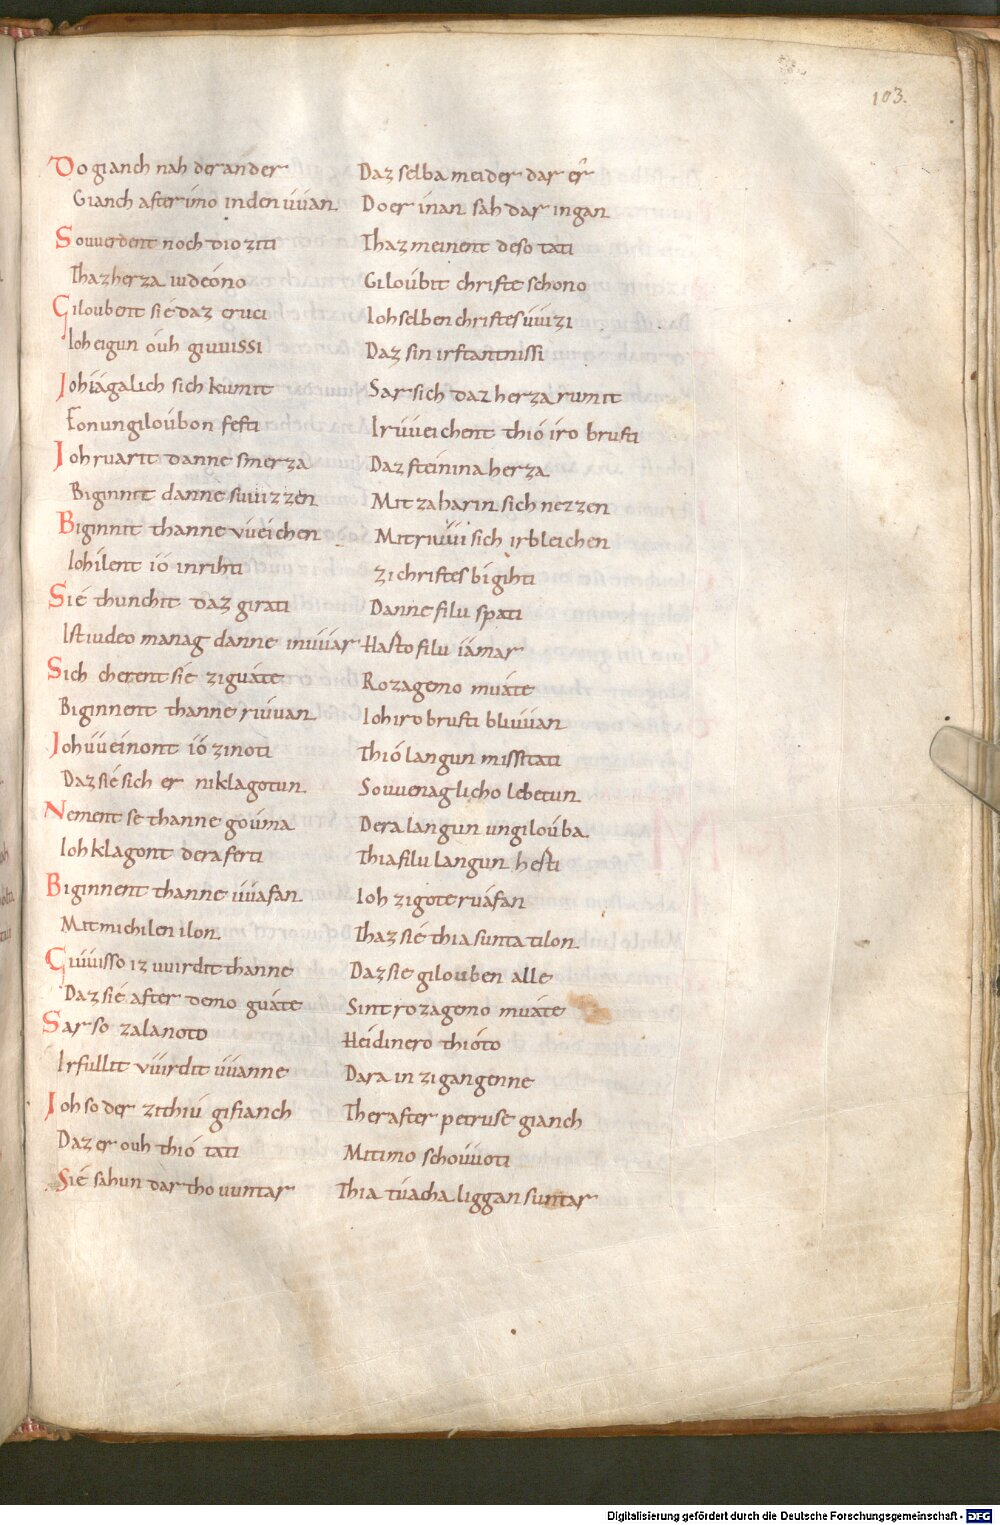 103.
Do gianch nah der ander Daz selba meider dar er
Gianch after imo in den uuan Do er inan sah dar ingan
So uuerdent noch dio ziti Thaz meinent deso tati
Thaz herza iudeóno Giloúbit christe schono
Giloubent sié daz cruci Ioh selben christes uuizi
Ioh eigun oúh giuuissi Daz sin irstantnissi
Ioh iágalich sich kumit Sar sich daz herza rumit
Fon ungiloúbon festi Iruueichent thió iro brusti
Ioh ruarit danne smerza Daz steinina herza
Biginnit danne suuizzen Mit zaharin sich nezzen
Biginnit thanne uueichen Mit riuui sich irbleichen
Ioh ilent ió in rihti zi christes bigihti
Sié thunchit daz girati Danne filu spati
Ist iudeo manag danne in uuar Hasto filu iámar
Sich cherent sié zi guáte Rozagemo muáte
Biginnent thanne riuuan Ioh iro brusti bliuuan
Ioh uueinont ió zi noti Thió langun missitati
Daz sié sich er ni klagotun So uuenaglicho lebetun
Nement se thanne goúma Dera langun ungiloúba
Ioh klagont dera ferti Thia filu langun hesti
Biginnent thanne uuafan Ioh zi gote ruáfan
Mit michilen ilon Thaz sié thia sunta tilon
Giuuisso iz uuirdit thanne Daz sie gilouben alle
Daz sié after demo guáte Sint rozagemo muáte
Sar so zala noto Heidinero thióto
Irfullit uuirdit uuanne Dara in zi gangenne
Ioh so der zi thiu gifianch Ther after petruse gianch
Daz er ouh thió tati Mit imo schouuoti
Sié sahun dar tho uuntar Thia tuacha liggan suntar
Digitalisierung gefördert durch die Deutsche Forschungsgemeinschaft - DFG